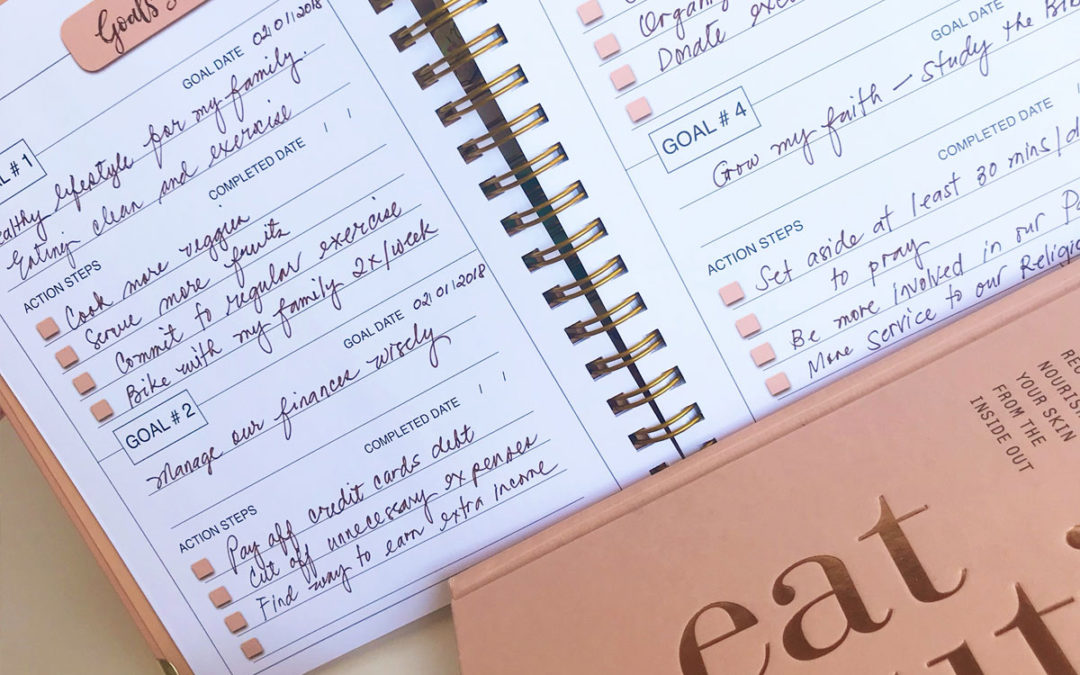 Goals
GOAL DATE 02/01/2018
healthy lifestyle for my family.
Eating clean and exercise
COMPLETED DATE / /
ACTION STEPS
Cook more veggies
Serve more fruits
Commit to regular exercise
Bike with my family 2x/week
GOAL #2
GOAL DATE 02/01/2018
Manage our finances wisely
COMPLETED DATE / /
ACTION STEPS
Pay off credit cards debt
Cut off unnecessary expenses
Find way to earn extra income
Donate
GOAL #4
GOAL DATE
Grow my faith – study the
COMPLETED DATE /
ACTION STEPS
Set aside at least 30 mins/
to pray
Be more involved in our
More service to our
NOURISH
YOUR SKIN
FROM THE
INSIDE OUT
eat